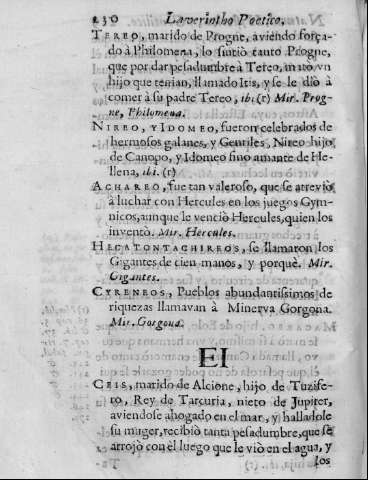 230 Laverintho Poetico,
TEREO, marido de Progne, aviendo força-
do à Philomena, lo sintiò tanto Progne,
que por dar pesadumbre à Tereo, mato vn
hijo que tenian, llamado Itis, y se le diò à
comer à su padre Tereo, ibi (r) Mir. Prog-
ne, Philomena.
NIREO, Y IDOMEO, fueron celebrados de
hermosos galanes, y Gentiles, Nireo hijo
de Canopo, y Idomeo fino amante de He-
llena, ibi. (r)
ACHAREO, fue tan valeroso, que se atreviò
à luchar con Hercules en los juegos Gym-
nicos, aunque le venciò Hercules, quien los
inventò. Mir. Hercules.
HECATONTACHIREOS, se llamaron los
Gigantes de cien manos, y porquè. Mir.
Gigantes.
CYRENEOS, Pueblos abundantissimos de
riquezas llamavan à Minerva Gorgona.
Mir. Gorgona.
EI
CEIS, marido de Alcione, hijo de Tuzife-
ro, Rey de Tarcuria, nieto de Jupiter,
aviendose ahogado en el mar, y halladole
su muger, recibiò tanta pesadumbre, que se
arrojò con èl luego que le viò en el agua, y
los